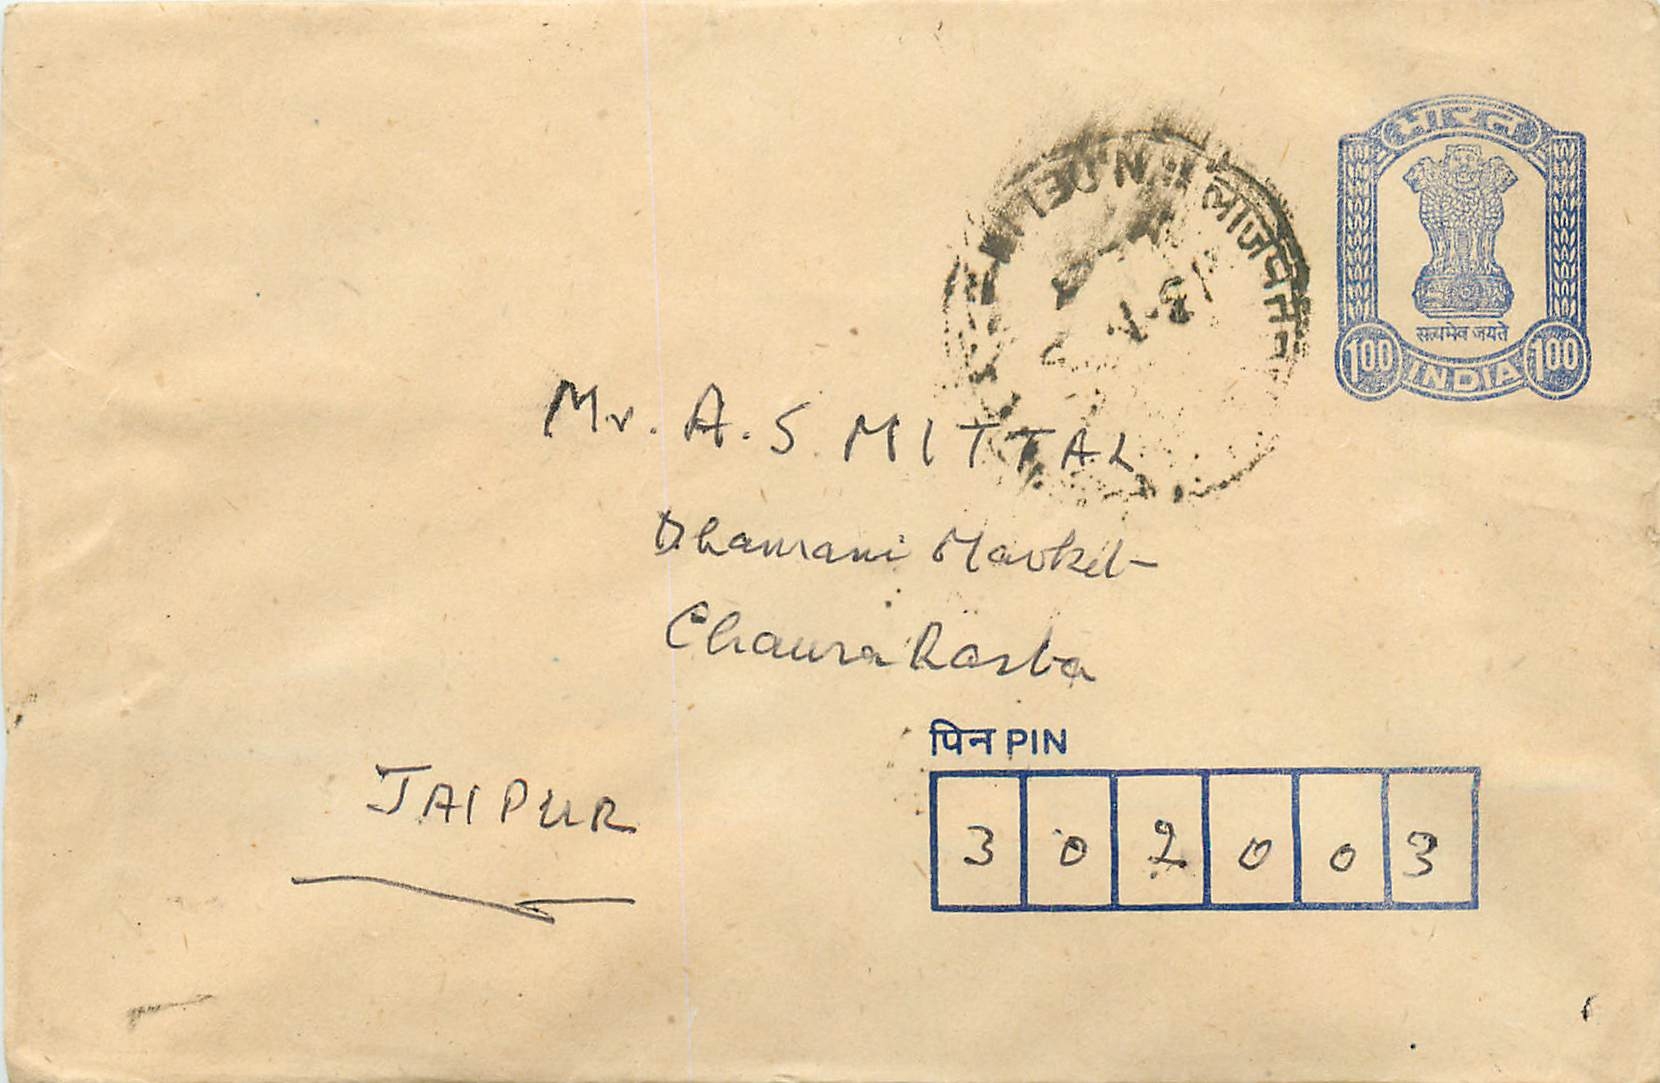 भारत
सत्यमेव जयते
1.00 INDIA 1.00
N.DELHI लाजपत न
Mr. A. S MITTAL
Dhamani Market
Chaura Rasta
JAIPUR
पिन PIN
3 0 2 0 0 3